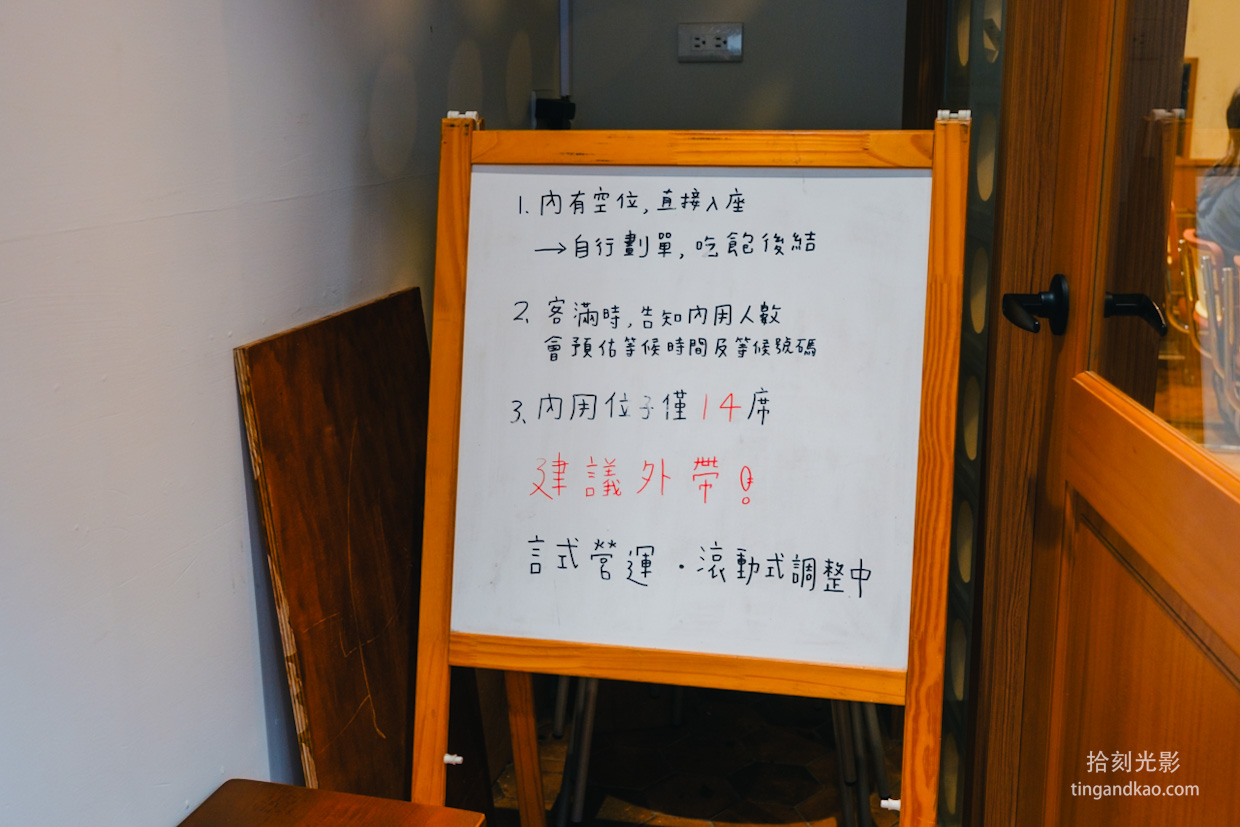 1. 內有空位, 直接入座
→自行劃單, 吃飽後結
2. 客滿時, 告知內用人數
會預估等候時間及等候號碼
3、內用位子僅14席
建議外帶!
試式營運・滾動式調整中
拾刻光影
tingandkao.com